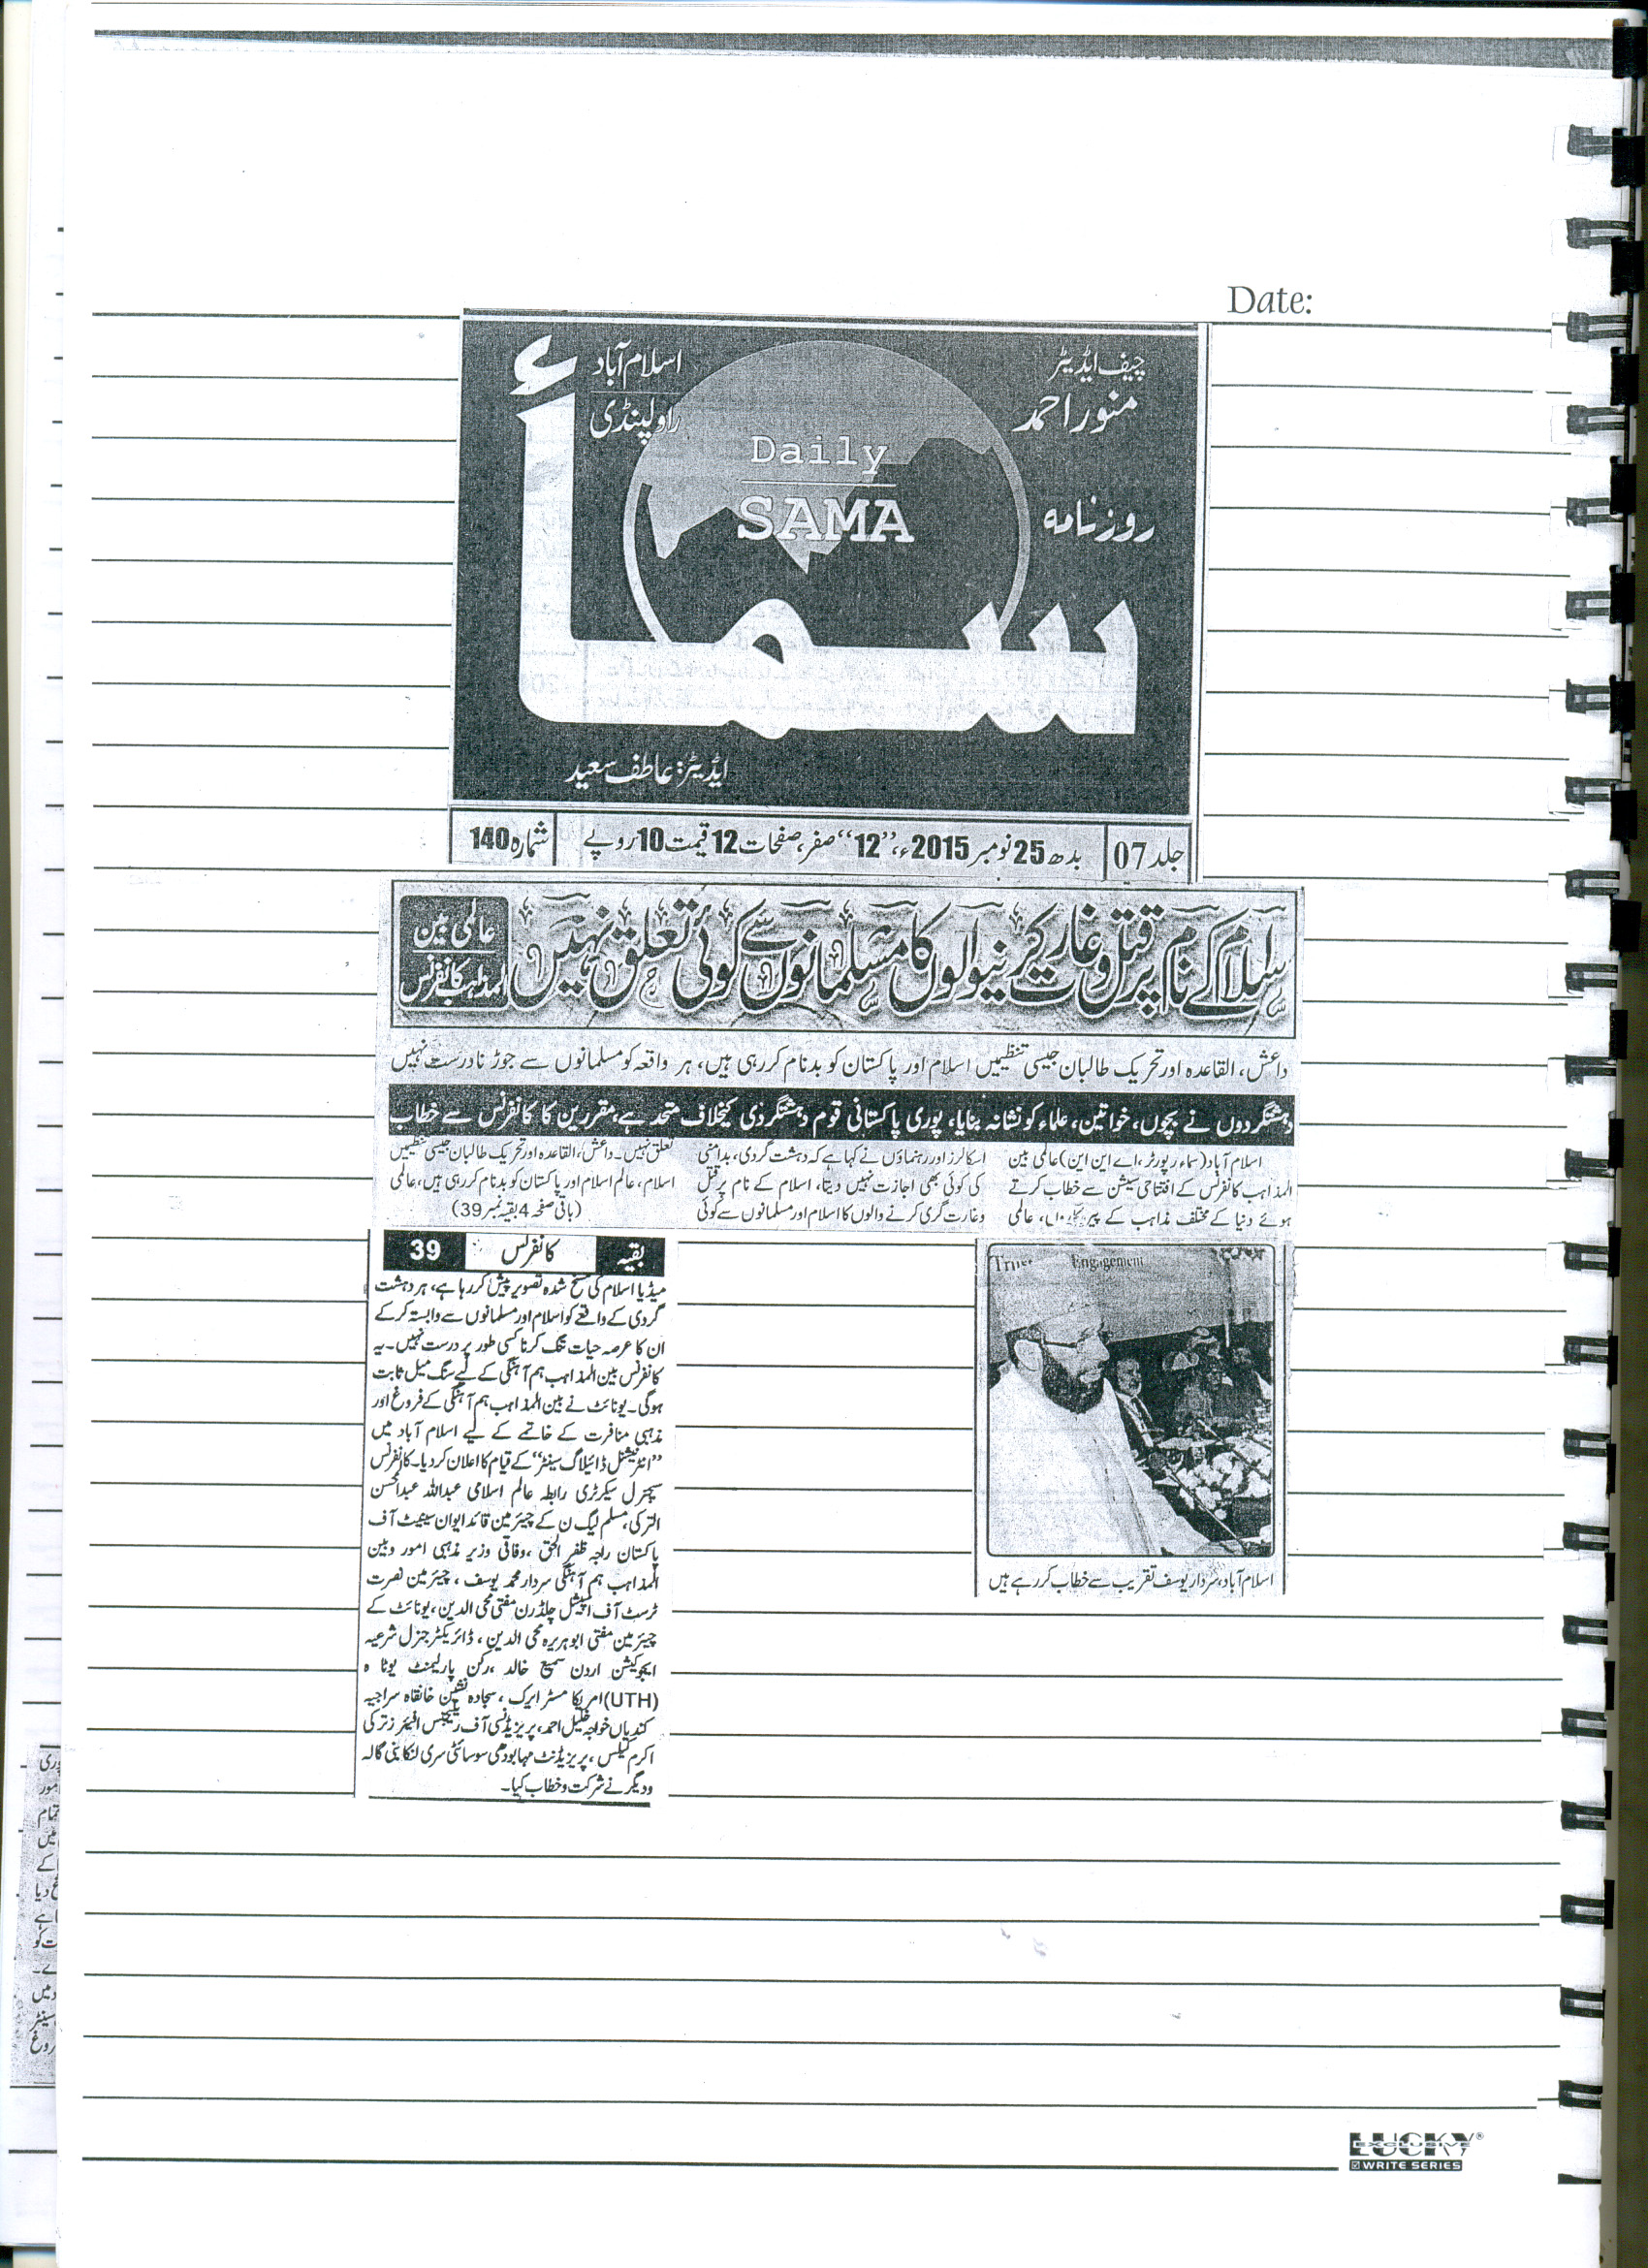 Date:
چیف ایڈیٹر
منور احمد
اسلام آباد
راولپنڈی
Daily
SAMA
روزنامہ
سماأ
ایڈیٹر: عاطف سعید
جلد 07
بدھ 25 نومبر 2015ء، “12” صفر، صفحات 12 قیمت 10 روپے
شمارہ 140
اسلام کے نام پر قتل و غارت کرنیوالوں کا مسلمانوں سے کوئی تعلق نہیں
عالمی بین
المذاہب کانفرنس
داعش، القاعدہ اور تحریک طالبان جیسی تنظیمیں اسلام اور پاکستان کو بدنام کر رہی ہیں، ہر واقعہ کو مسلمانوں سے جوڑنا درست نہیں
دہشتگردوں نے بچوں، خواتین، علماء کو نشانہ بنایا، پوری پاکستانی قوم دہشتگردی کیخلاف متحد ہے، مقررین کا کانفرنس سے خطاب
اسلام آباد (سماء رپورٹر، اے این این) عالمی بین
المذاہب کانفرنس کے افتتاحی سیشن سے خطاب کرتے
ہوئے دنیا کے مختلف مذاہب کے پیروکاروں، عالمی
اسکالرز اور رہنماؤں نے کہا ہے کہ دہشت گردی، بدامنی
کی کوئی بھی اجازت نہیں دیتا، اسلام کے نام پر قتل
وغارت گری کرنے والوں کا اسلام اور مسلمانوں سے کوئی
تعلق نہیں۔ داعش، القاعدہ اور تحریک طالبان جیسی تنظیمیں
اسلام، عالم اسلام اور پاکستان کو بدنام کر رہی ہیں، عالمی
(باقی صفحہ 4 بقیہ نمبر 39)
بقیہ کانفرنس 39
میڈیا اسلام کی مسخ شدہ تصویر پیش کر رہا ہے، ہر دہشت
گردی کے واقعے کو اسلام اور مسلمانوں سے وابستہ کر کے
ان کا عرصہ حیات تنگ کرنا کسی طور پر درست نہیں۔ یہ
کانفرنس بین المذاہب ہم آہنگی کے لیے سنگ میل ثابت
ہوگی۔ یونائٹ نے بین المذاہب ہم آہنگی کے فروغ اور
مذہبی منافرت کے خاتمے کے لیے اسلام آباد میں
”انٹرنیشنل ڈائیلاگ سینٹر“ کے قیام کا اعلان کر دیا۔ کانفرنس
سیکرٹری رابطہ عالم اسلامی عبداللہ عبدالمحسن
الترکی، مسلم لیگ ن کے چیئرمین قائد ایوان سینیٹ آف
پاکستان راجہ ظفر الحق، وفاقی وزیر مذہبی امور و بین
المذاہب ہم آہنگی سردار محمد یوسف، چیئرمین نصرت
ٹرسٹ آف اسپیشل چلڈرن مفتی محی الدین، یونائٹ کے
چیئرمین مفتی ابوہریرہ محی الدین، ڈائریکٹر جنرل شرعیہ
ایجوکیشن اردن سمیع خالد، رکن پارلیمنٹ یوٹا ہ
(UTH) امریکا مسٹر ایرک، سجادہ نشین خانقاہ سراجیہ
کندیاں خواجہ خلیل احمد، پریزیڈنسی آف ریلیجس افیئرز ترکی
اکرم کیلس، پریزیڈنٹ مہابودھی سوسائٹی سری لنکا بنی گالہ
ودیگر نے شرکت و خطاب کیا۔
Trust Engagement
اسلام آباد، سردار یوسف تقریب سے خطاب کر رہے ہیں
LUCKY
EXCLUSIVE
WRITE SERIES